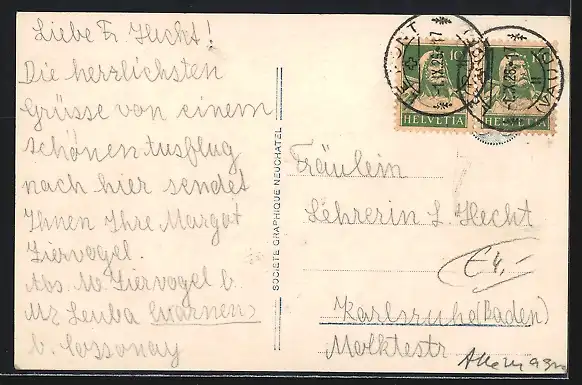 Liebe Fr. Hecht!
Die herrlichsten
Grüsse von einem
schönen Ausflug
nach hier sendet
Ihnen Ihre Margot
Ziervogel.
Abs. M. Ziervogel b.
Mr Leuba
b. Cossonay
SOCIÉTÉ GRAPHIQUE NEUCHATEL
10
HELVETIA
HELVETIA
Fräulein
Lehrerin L. Hecht
E 4,-
Karlsruhe (Baden)
Moltkestr
Allemagne